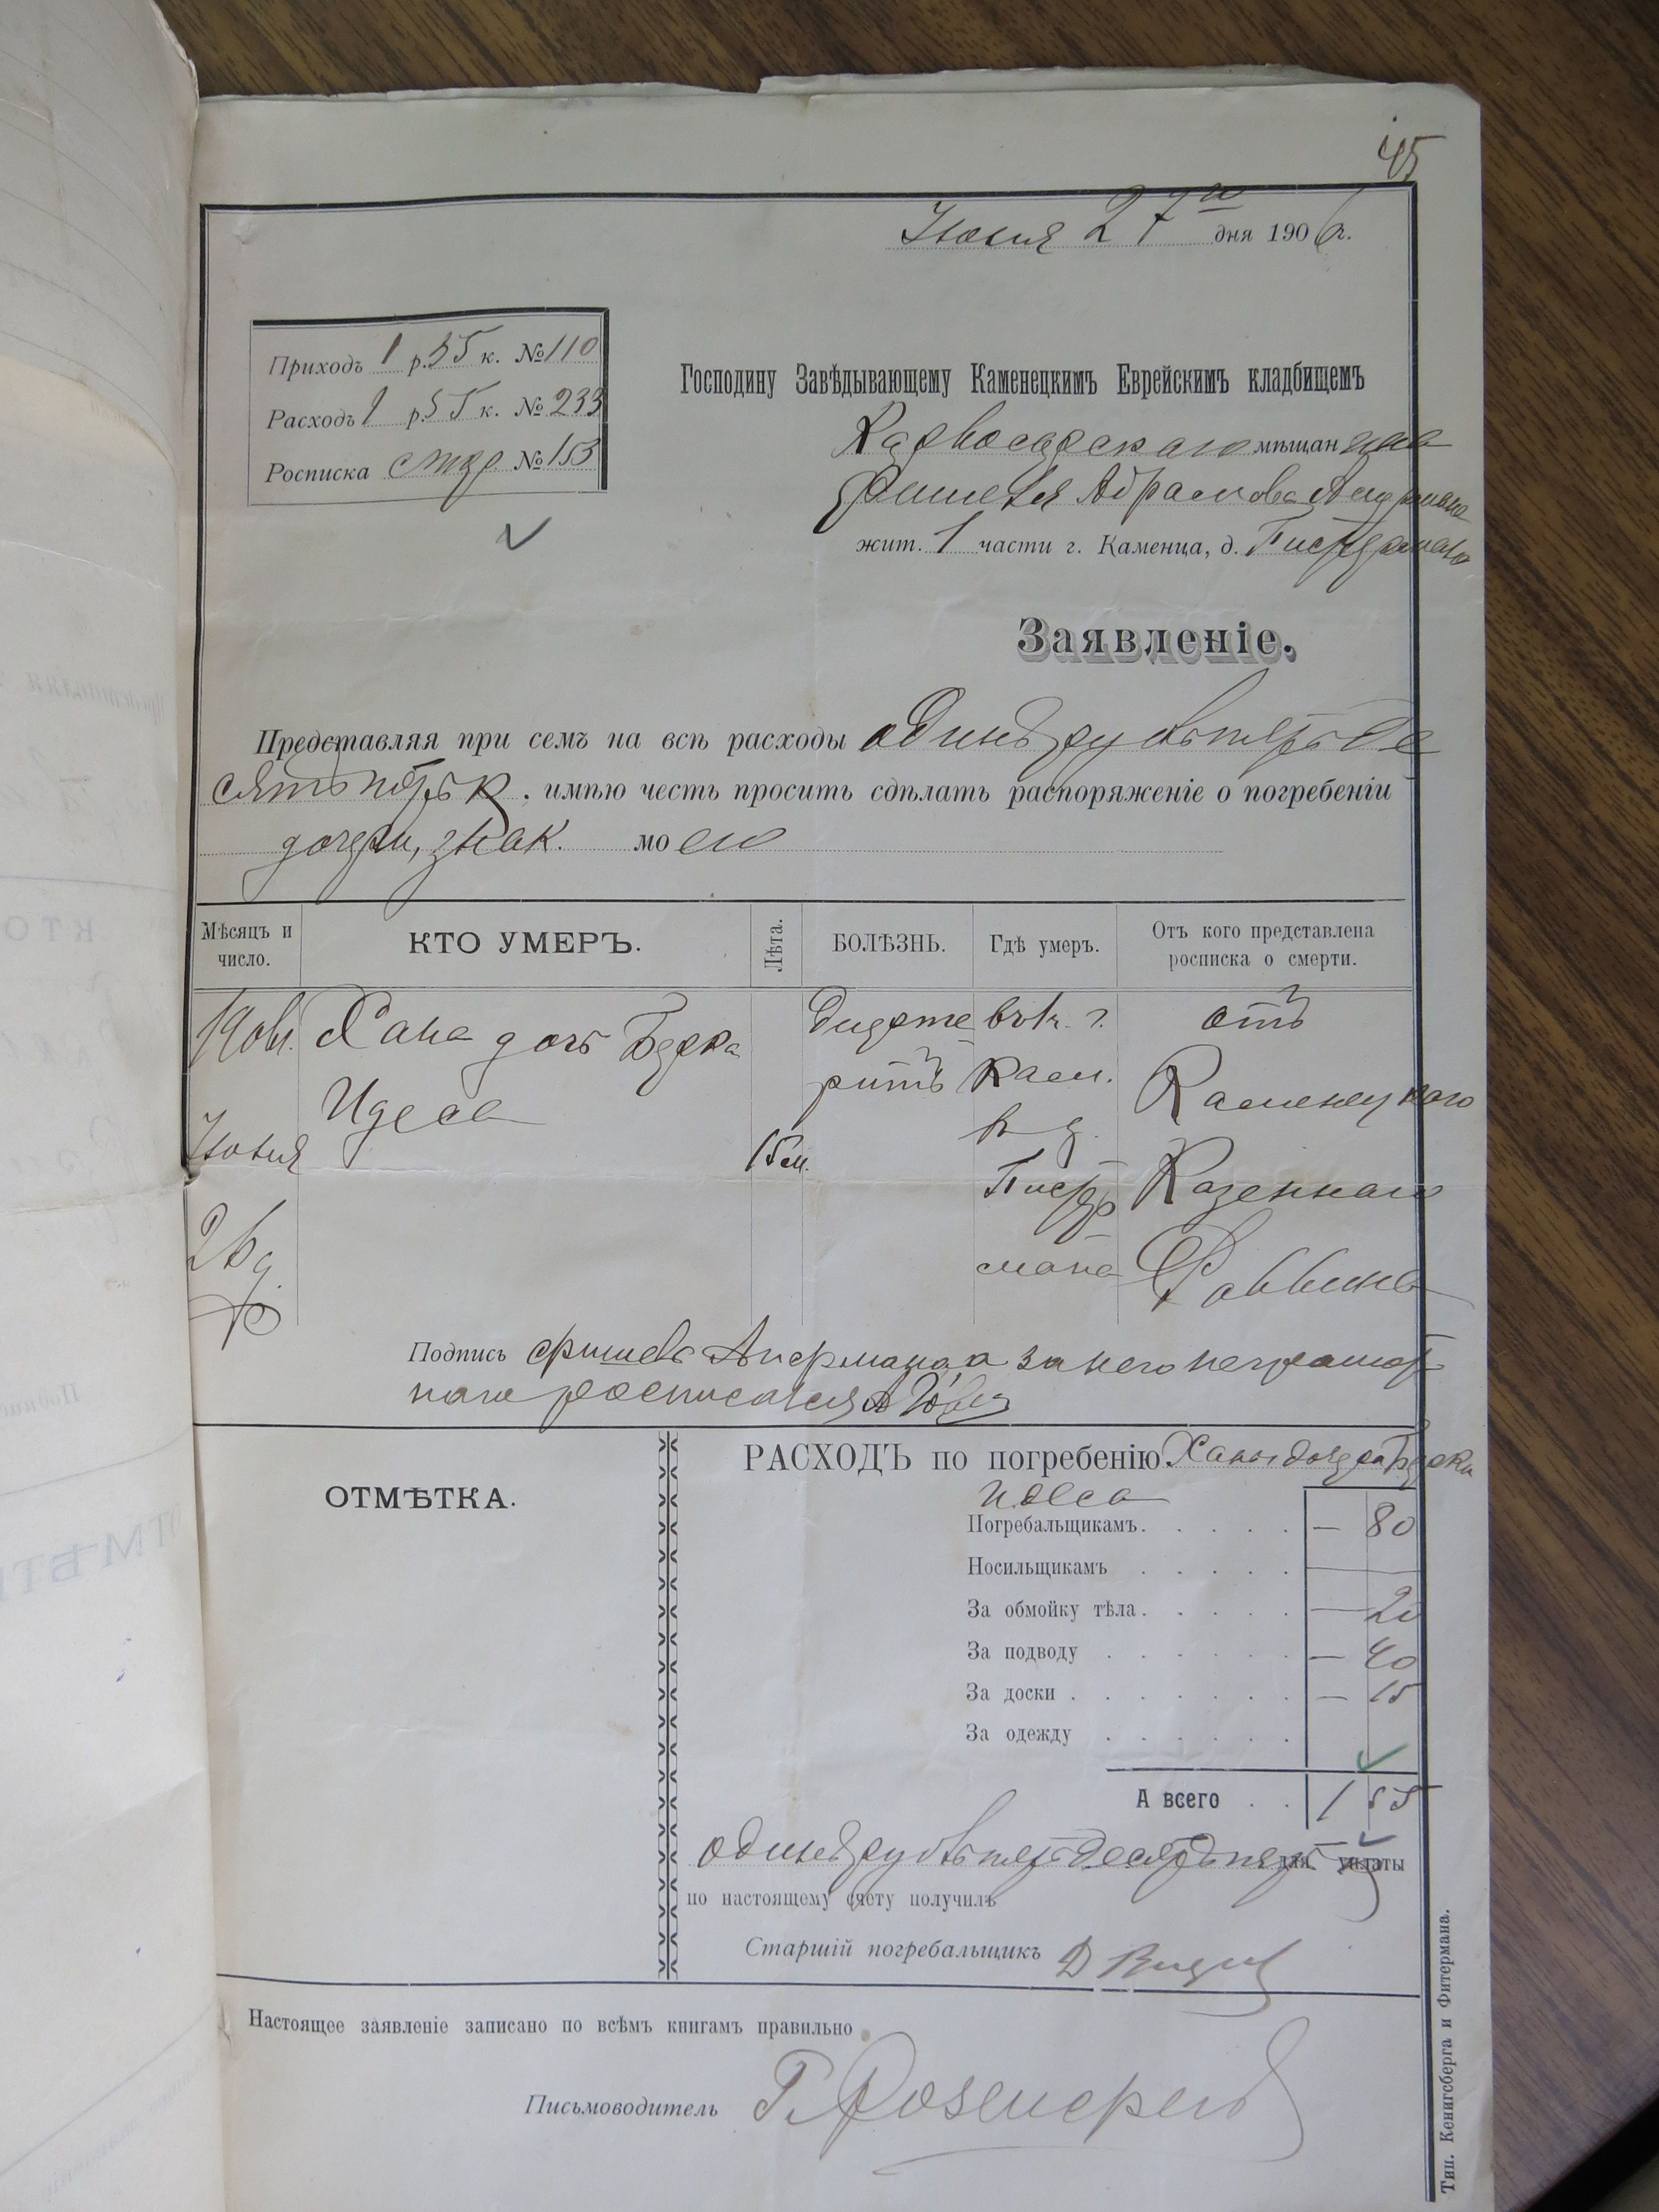 45
Іюня 27го дня 1906 г.
Приходъ 1 р. 55 к. № 110
Расходъ 1 р. 55 к. № 233
Росписка № 153
Господину Завѣдывающему Каменецкимъ Еврейскимъ кладбищемъ
мѣщанина
Фишеля Абрамова
жит. 1 части г. Каменца, д.
Заявленіе.
Представляя при семъ на всѣ расходы одинъ руб пятьде
сятъ пять к, имѣю честь просить сдѣлать распоряженіе о погребеніи
дочери, знак. моего
Мѣсяцъ и число.
КТО УМЕРЪ.
Лѣта.
БОЛѢЗНЬ.
Гдѣ умеръ.
Отъ кого представлена росписка о смерти.
1906г. Іюня
Хана дочь Берка
Идеса
15 м.
Дизенте
ритъ
въ г.
Кам.
въ д.
мана
отъ
Каменецкаго
Казеннаго
Раввина
Подпись Фишель а за него неграмот
наго росписался
ОТМѢТКА.
РАСХОДЪ по погребенію Ханы дочери Берки
Идеса
Погребальщикамъ. — 80
Носильщикамъ
За обмойку тѣла. — 20
За подводу — 40
За доски — 15
За одежду
А всего 1 55
одинъ руб пятьдесятъ пять для уплаты
по настоящему счету получилъ
Старшій погребальщикъ Д
Настоящее заявленіе записано по всѣмъ книгамъ правильно
Письмоводитель Г.
Тип. Кенигсберга и Фитермана.